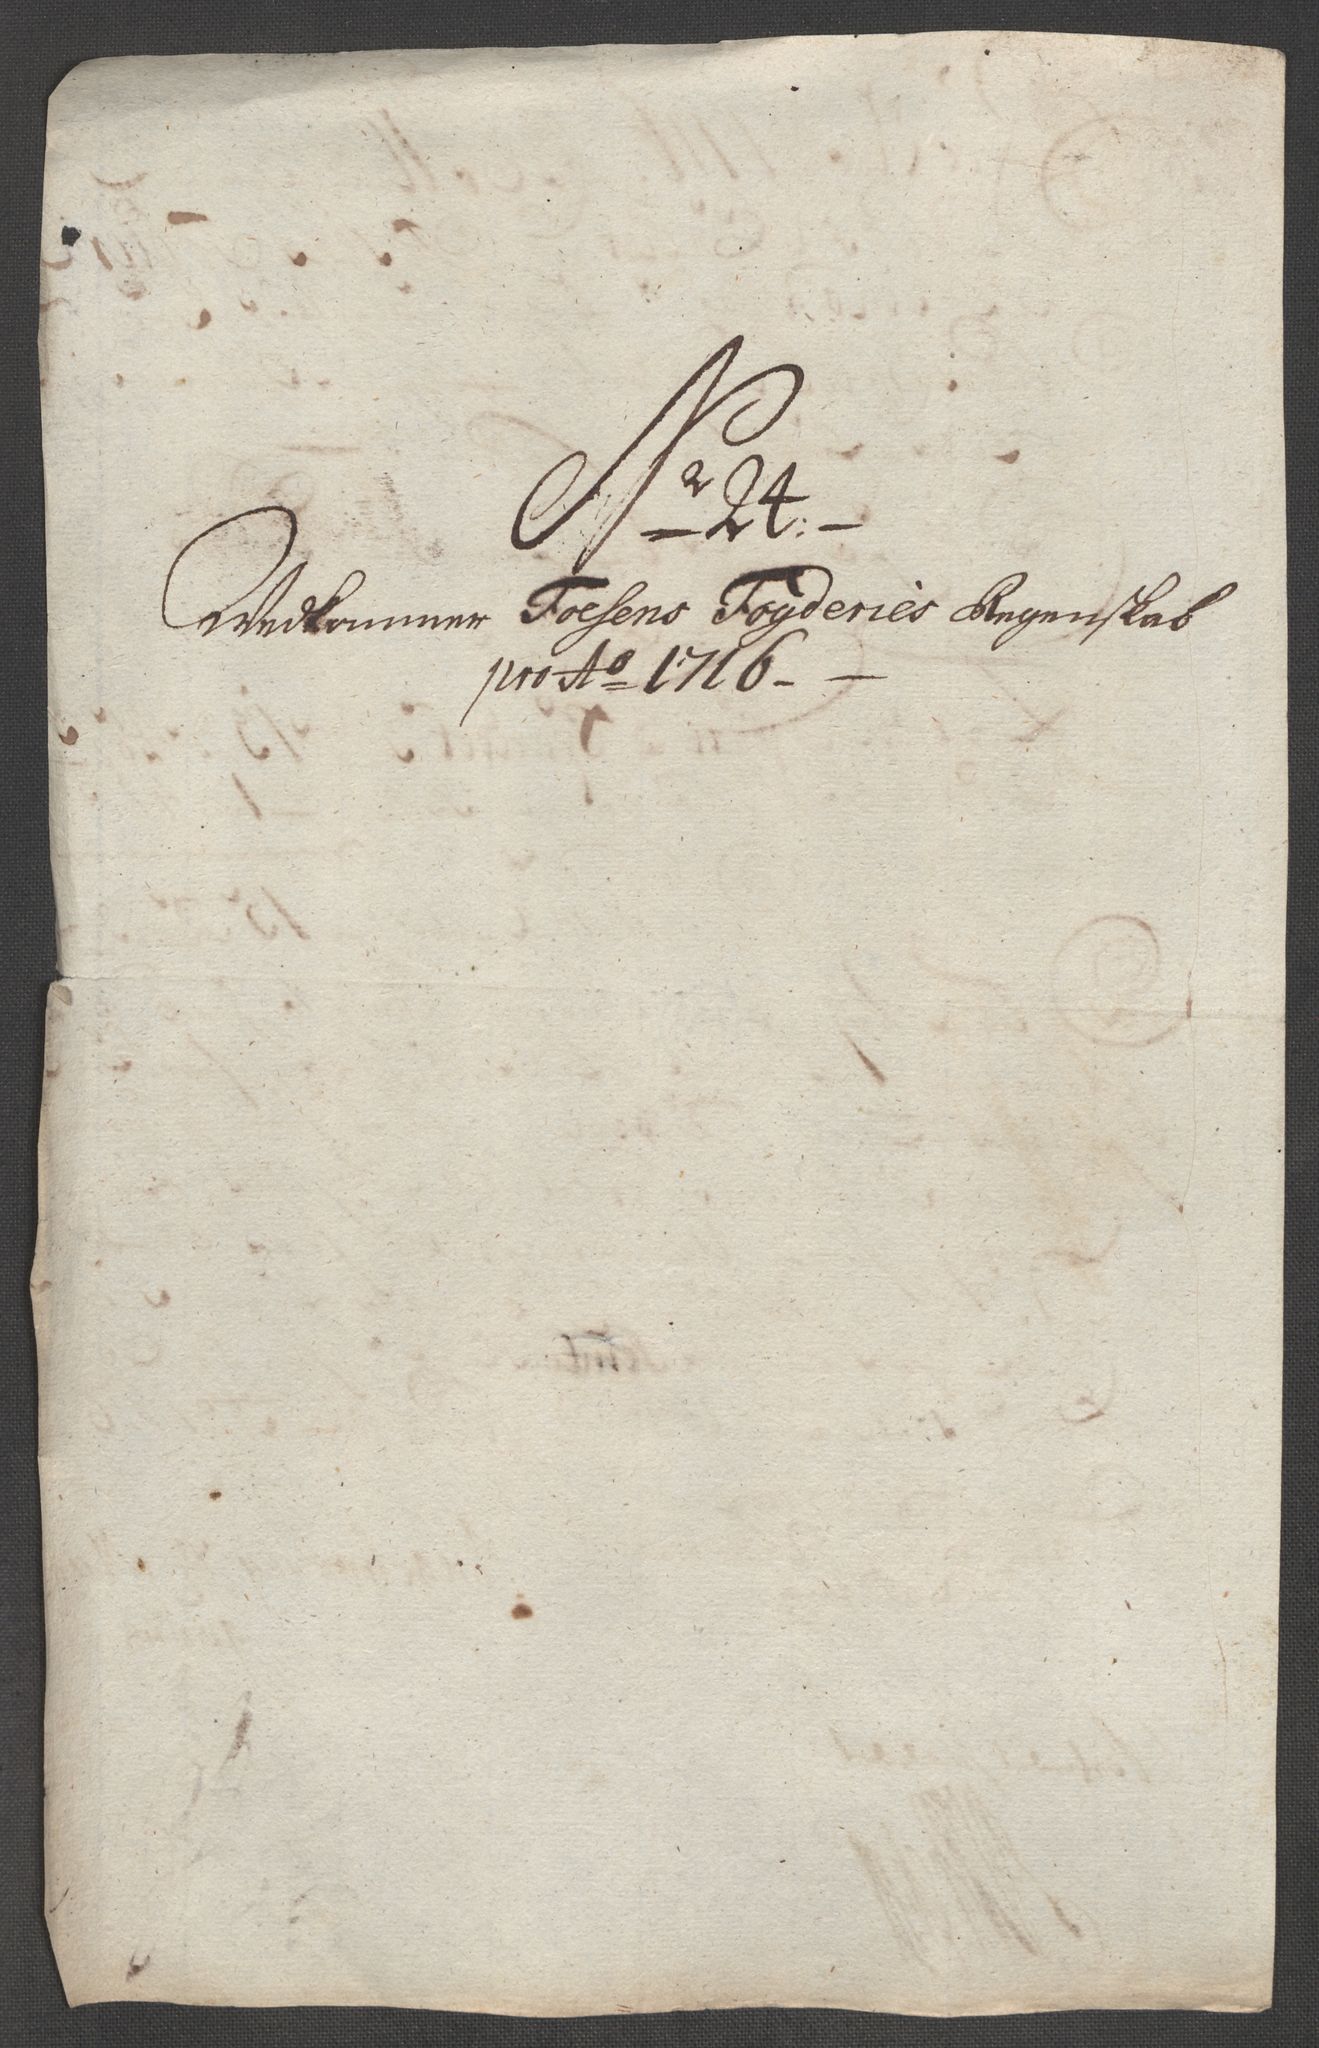 No 24.
Vedkommer Foesens Fogderies Regenskab
pro Ao 1716